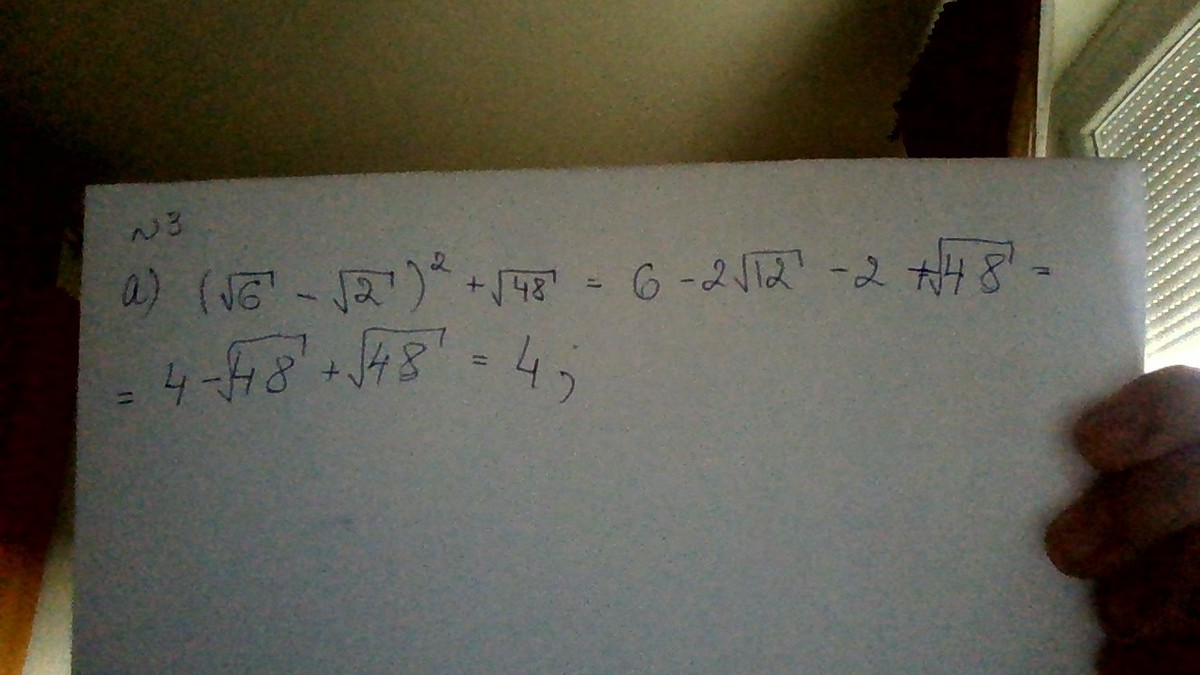 №3
а) (√6 - √2)² + √48 = 6 - 2√12 - 2 + √48 =
= 4 - √48 + √48 = 4;